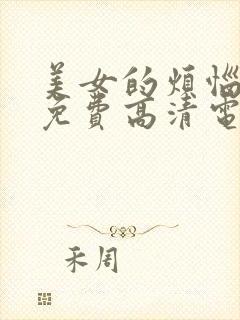 美女的烦恼
免费高清电
禾周